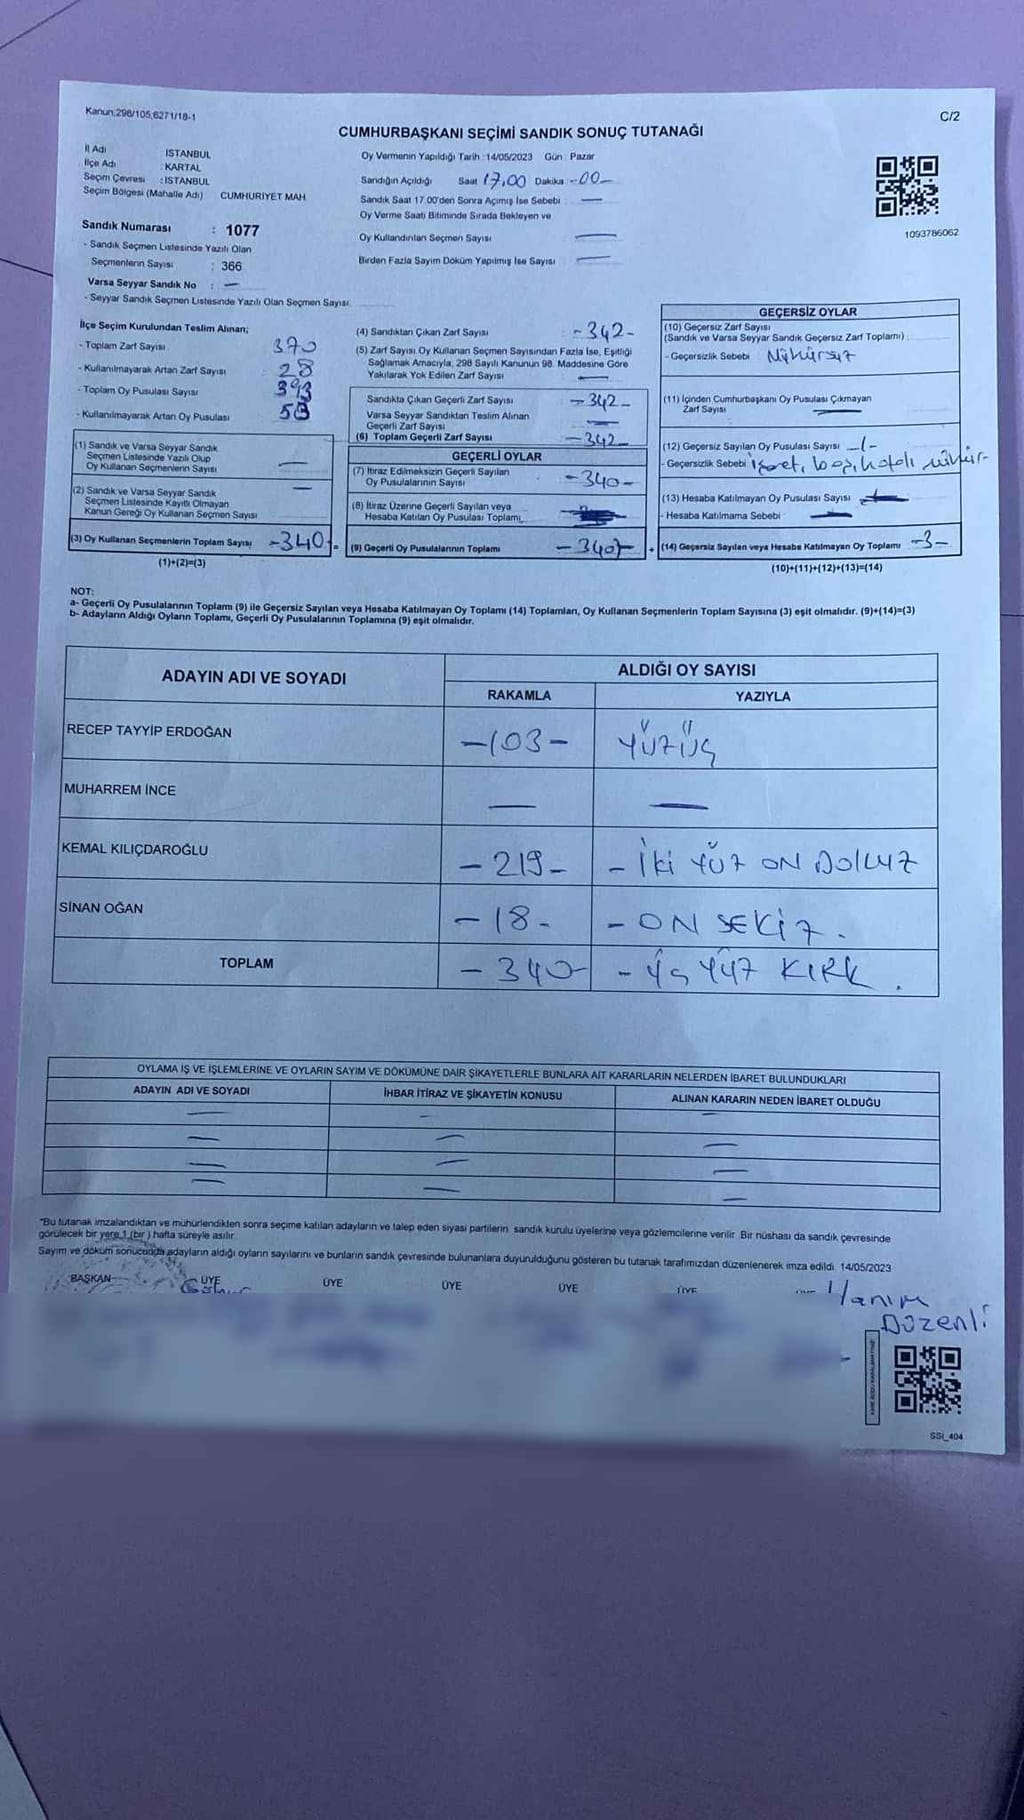 Kanun:298/105,6271/18-1
C/2
CUMHURBAŞKANI SEÇİMİ SANDIK SONUÇ TUTANAĞI
İl Adı İSTANBUL
İlçe Adı : KARTAL
Seçim Çevresi : İSTANBUL
Seçim Bölgesi (Mahalle Adı) CUMHURİYET MAH.
Sandık Numarası : 1077
- Sandık Seçmen Listesinde Yazılı Olan
Seçmenlerin Sayısı : 366
Varsa Seyyar Sandık No : —
- Seyyar Sandık Seçmen Listesinde Yazılı Olan Seçmen Sayısı:
Oy Vermenin Yapıldığı Tarih :14/05/2023 Gün : Pazar
Sandığın Açıldığı Saat 17,00 Dakika -00-
Sandık Saat 17.00'den Sonra Açımış İse Sebebi —
Oy Verme Saati Bitiminde Sırada Bekleyen ve
Oy Kullandırılan Seçmen Sayısı —
Birden Fazla Sayım Döküm Yapılmış İse Sayısı —
1093786062
İlçe Seçim Kurulundan Teslim Alınan;
- Toplam Zarf Sayısı 370
- Kullanılmayarak Artan Zarf Sayısı 28
- Toplam Oy Pusulası Sayısı 393
- Kullanılmayarak Artan Oy Pusulası
(1) Sandık ve Varsa Seyyar Sandık
Seçmen Listesinde Yazılı Olup
Oy Kullanan Seçmenlerin Sayısı —
(2) Sandık ve Varsa Seyyar Sandık
Seçmen Listesinde Kayıtlı Olmayan
Kanun Gereği Oy Kullanan Seçmen Sayısı —
(3) Oy Kullanan Seçmenlerin Toplam Sayısı -340-
(1)+(2)=(3)
(4) Sandıktan Çıkan Zarf Sayısı :-342-
(5) Zarf Sayısı Oy Kullanan Seçmen Sayısından Fazla İse, Eşitliği
Sağlamak Amacıyla, 298 Sayılı Kanunun 98. Maddesine Göre
Yakılarak Yok Edilen Zarf Sayısı —
Sandıkta Çıkan Geçerli Zarf Sayısı -342-
Varsa Seyyar Sandıktan Teslim Alınan
Geçerli Zarf Sayısı
(6) Toplam Geçerli Zarf Sayısı -342-
GEÇERLİ OYLAR
(7) İtiraz Edilmeksizin Geçerli Sayılan
Oy Pusulalarının Sayısı -340-
(8) İtiraz Üzerine Geçerli Sayılan veya
Hesaba Katılan Oy Pusulası Toplamı
(9) Geçerli Oy Pusulalarının Toplamı -340-
GEÇERSİZ OYLAR
(10) Geçersiz Zarf Sayısı
(Sandık ve Varsa Seyyar Sandık Geçersiz Zarf Toplamı) :
- Geçersizlik Sebebi Mühürsüz
(11) İçinden Cumhurbaşkanı Oy Pusulası Çıkmayan
Zarf Sayısı —
(12) Geçersiz Sayılan Oy Pusulası Sayısı -1-
- Geçersizlik Sebebi işaret, boş, hatalı mühür-
(13) Hesaba Katılmayan Oy Pusulası Sayısı
- Hesaba Katılmama Sebebi —
(14) Geçersiz Sayılan veya Hesaba Katılmayan Oy Toplamı -3-
(10)+(11)+(12)+(13)=(14)
NOT:
a- Geçerli Oy Pusulalarının Toplamı (9) ile Geçersiz Sayılan veya Hesaba Katılmayan Oy Toplamı (14) Toplamları, Oy Kullanan Seçmenlerin Toplam Sayısına (3) eşit olmalıdır. (9)+(14)=(3)
b- Adayların Aldığı Oyların Toplamı, Geçerli Oy Pusulalarının Toplamına (9) eşit olmalıdır.
ADAYIN ADI VE SOYADI ALDIĞI OY SAYISI
RAKAMLA YAZIYLA
RECEP TAYYİP ERDOĞAN -103- YÜZÜÇ
MUHARREM İNCE — —
KEMAL KILIÇDAROĞLU -219- -İKİ YÜZ ON DOKUZ
SİNAN OĞAN -18- -ON SEKİZ.
TOPLAM -340- -ÜÇ YÜZ KIRK.
OYLAMA İŞ VE İŞLEMLERİNE VE OYLARIN SAYIM VE DÖKÜMÜNE DAİR ŞİKAYETLERLE BUNLARA AİT KARARLARIN NELERDEN İBARET BULUNDUKLARI
ADAYIN ADI VE SOYADI İHBAR İTİRAZ VE ŞİKAYETİN KONUSU ALINAN KARARIN NEDEN İBARET OLDUĞU
— — —
— — —
— — —
— — —
"Bu tutanak imzalandıktan ve mühürlendikten sonra seçime katılan adayların ve talep eden siyasi partilerin sandık kurulu üyelerine veya gözlemcilerine verilir. Bir nüshası da sandık çevresinde
görülecek bir yere 1 (bir ) hafta süreyle asılır.
Sayım ve döküm sonucunda adayların aldığı oyların sayılarını ve bunların sandık çevresinde bulunanlara duyurulduğunu gösteren bu tutanak tarafımızdan düzenlenerek imza edildi. 14/05/2023
BAŞKAN ÜYE ÜYE ÜYE ÜYE ÜYE
Hanım
Düzenli
SSI_404